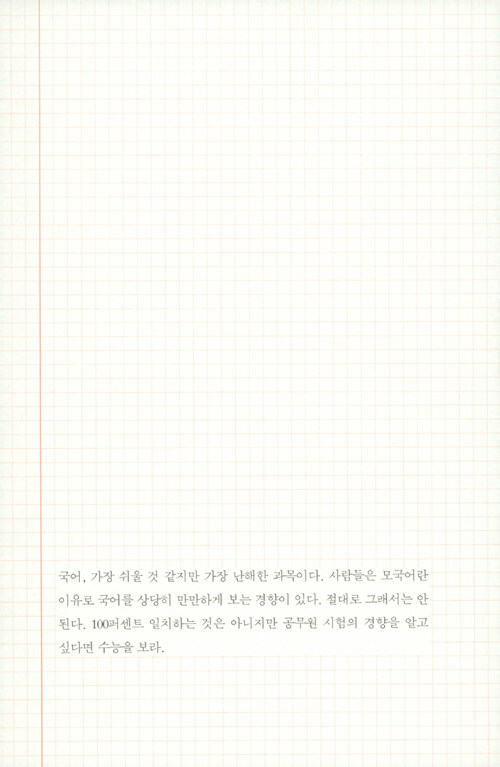 국어, 가장 쉬울 것 같지만 가장 난해한 과목이다. 사람들은 모국어란
이유로 국어를 상당히 만만하게 보는 경향이 있다. 절대로 그래서는 안
된다. 100퍼센트 일치하는 것은 아니지만 공무원 시험의 경향을 알고
싶다면 수능을 보라.